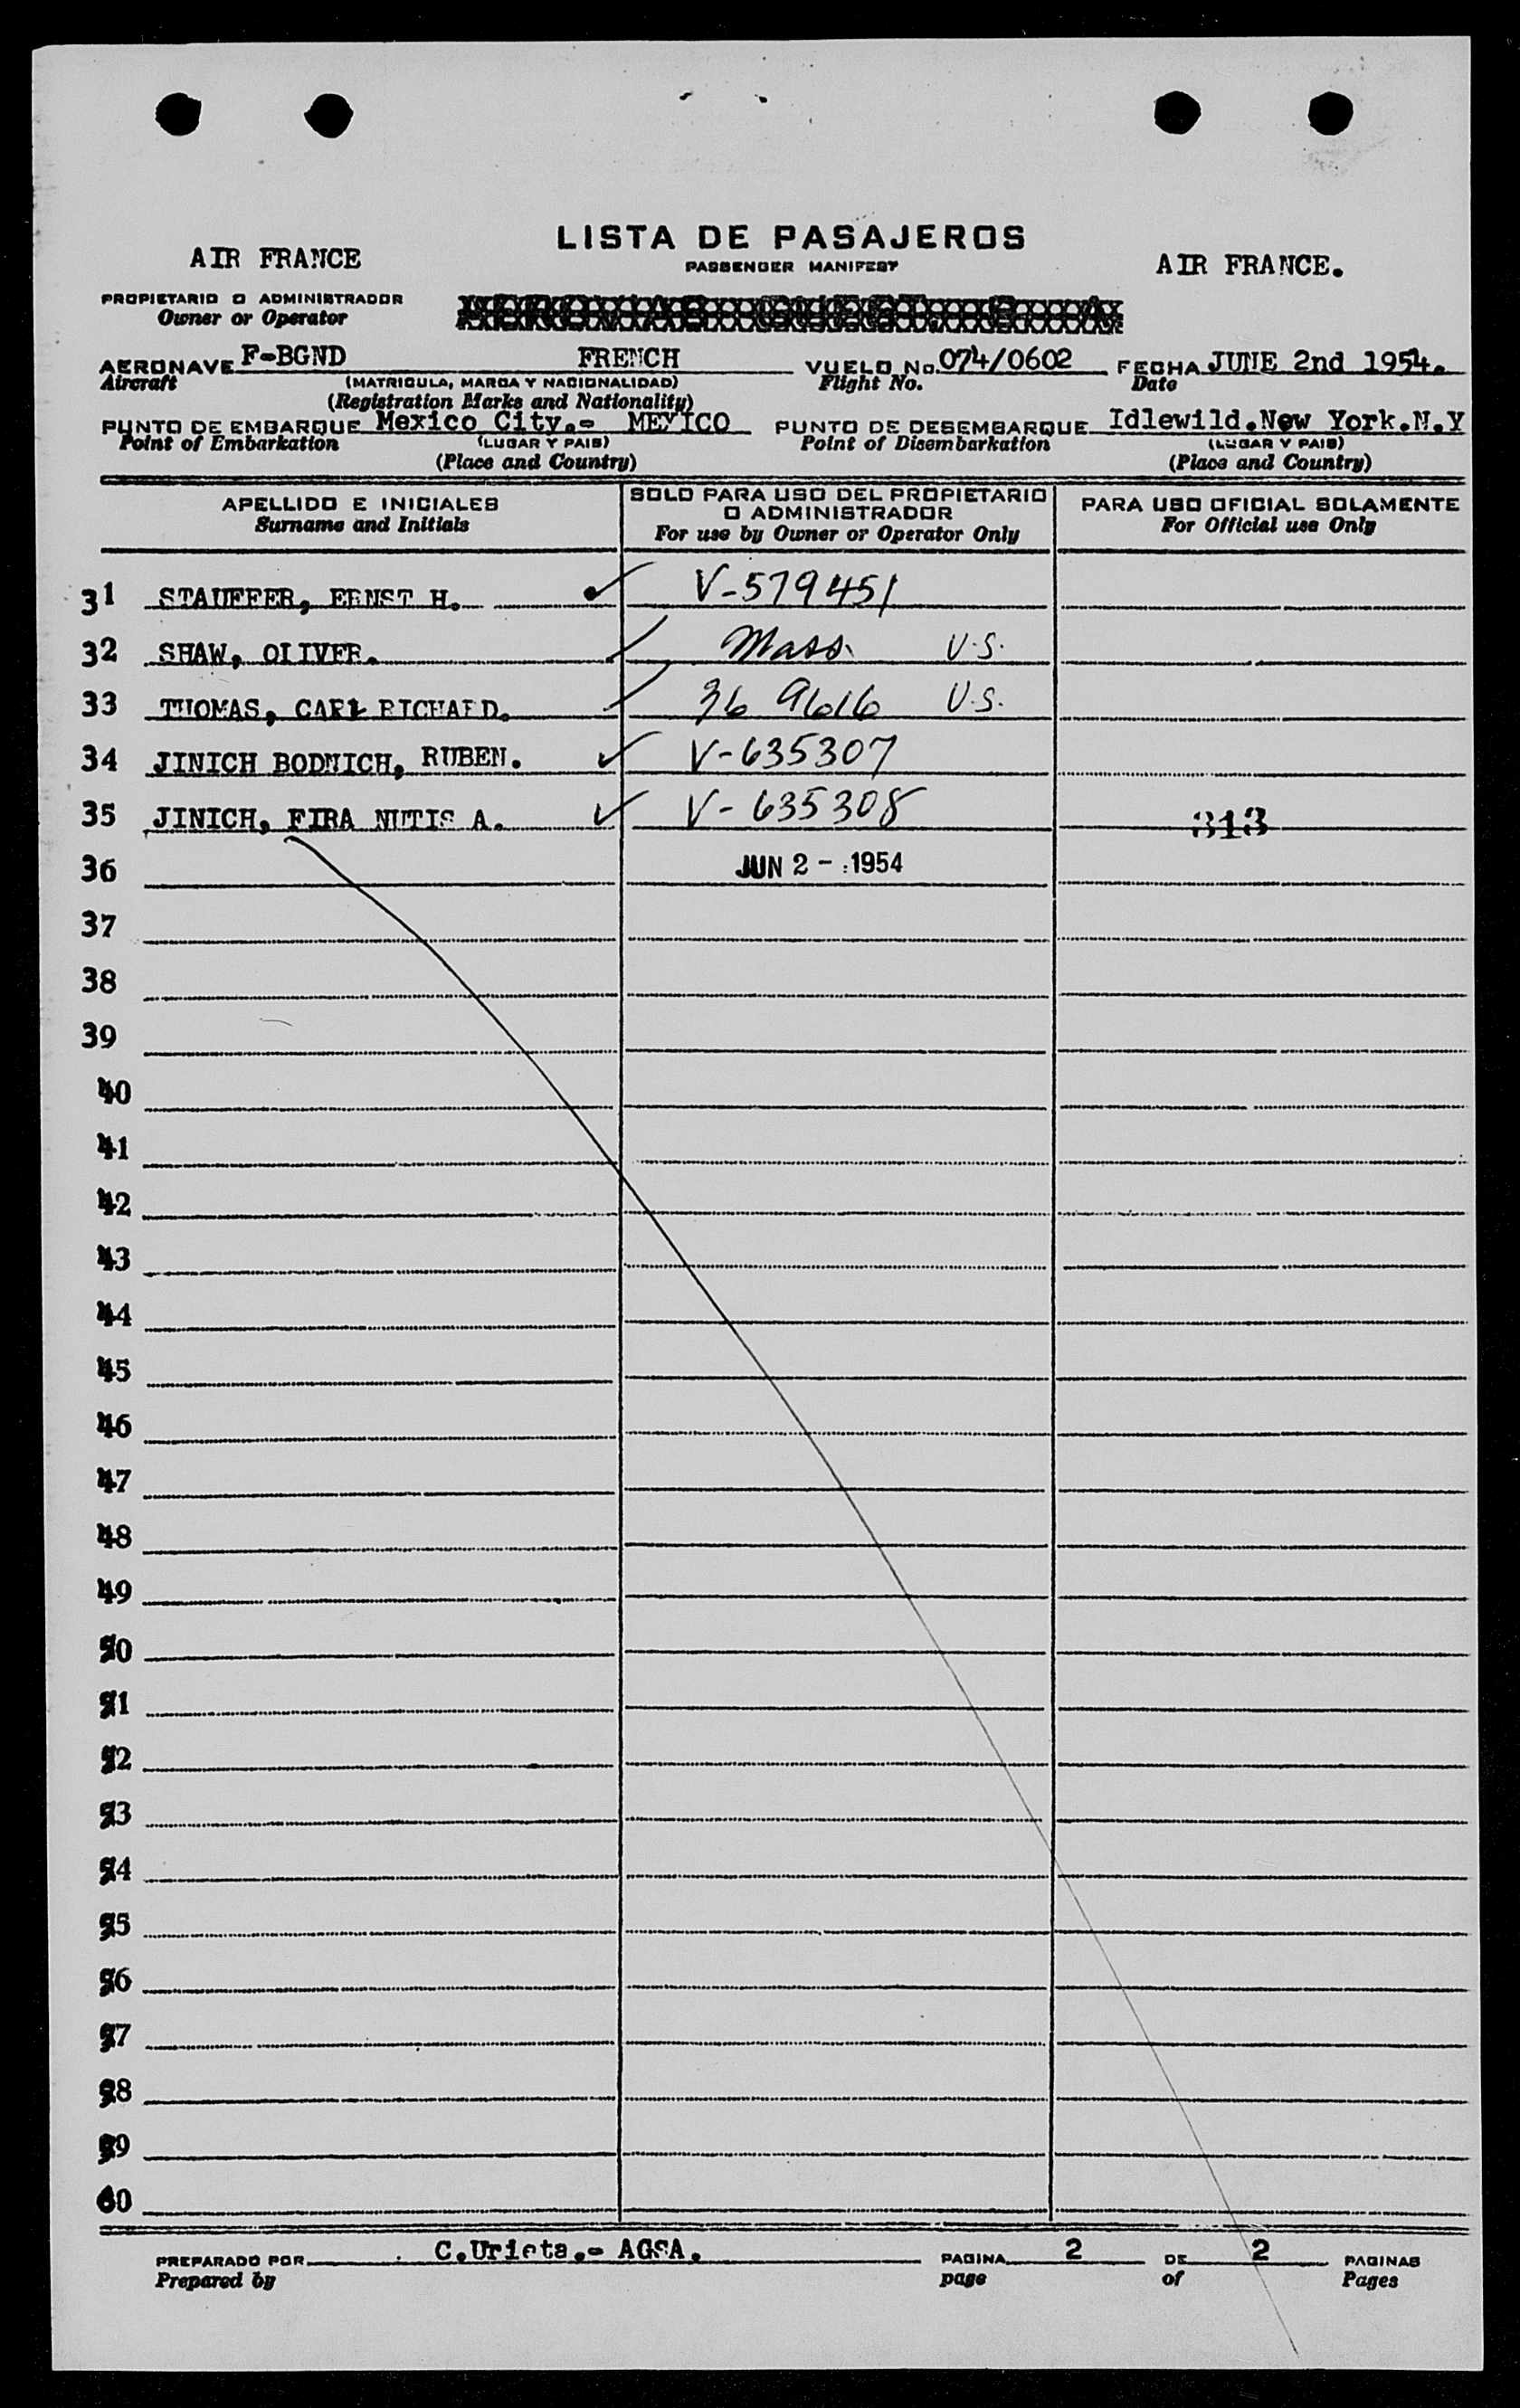 LISTA DE PASAJEROS
AIR FRANCE
PASSENGER MANIFEST
AIR FRANCE.
PROPIETARIO O ADMINISTRADOR
Owner or Operator
AERONAVE F-BGND FRENCH VUELO No. 074/0602 FECHA JUNE 2nd 1954.
Aircraft (MATRICULA, MARCA Y NACIONALIDAD) Flight No. Date
(Registration Marks and Nationality)
PUNTO DE EMBARQUE Mexico City.- MEXICO PUNTO DE DESEMBARQUE Idlewild.New York.N.Y
Point of Embarkation (LUGAR Y PAIS) Point of Disembarkation (LUGAR Y PAIS)
(Place and Country) (Place and Country)
APELLIDO E INICIALES
Surname and Initials
SOLO PARA USO DEL PROPIETARIO
O ADMINISTRADOR
For use by Owner or Operator Only
PARA USO OFICIAL SOLAMENTE
For Official use Only
31 STAUFFER, ERNST H. V-579451
32 SHAW, OLIVER. Mass. U.S.
33 THOMAS, CARL RICHARD. 36 9616 U.S.
34 JINICH BODNICH, RUBEN. V-635307
35 JINICH, FIRA NUTIS A. V-635308 313
36 JUN 2 - 1954
37
38
39
40
41
42
43
44
45
46
47
48
49
50
51
52
53
54
55
56
57
58
59
60
PREPARADO POR C.Urieta.- AGSA. PAGINA 2 DE 2 PAGINAS
Prepared by page of Pages